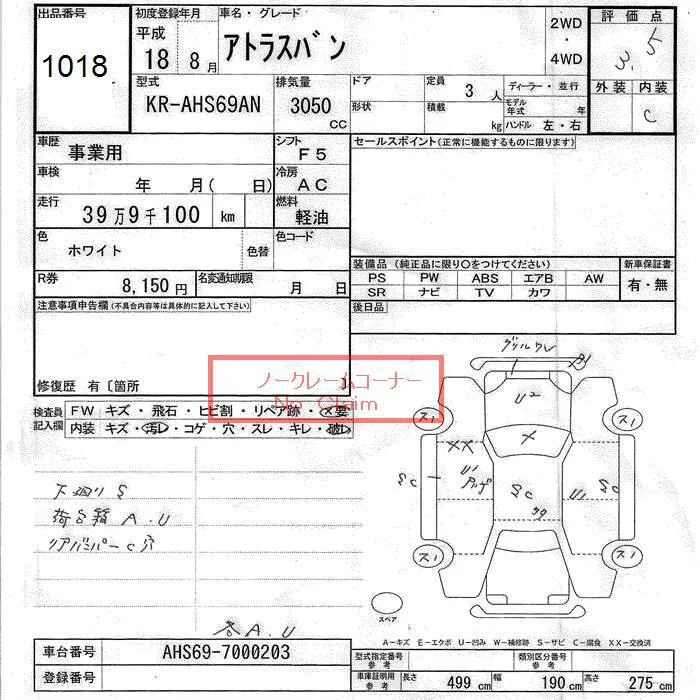 出品番号 初度登録年月 車名・グレード 2WD・4WD 評価点
1018 平成 18 8月 アトラスバン 3.5
外装 内装
C
型式 排気量 ドア 定員 3人 ディーラー・並行
KR-AHS69AN 3050 CC 形状 積載 kg モデル年式 年
ハンドル 左・右
車歴 事業用 シフト F5 セールスポイント(正常に機能するものに限ります)
車検 年 月(日) 冷房 AC
走行 39万9千100 km 燃料 軽油
色 ホワイト 色替 色コード
装備品 (純正品に限り○をつけてください) 新車保証書
R券 8,150円 名変通知期限 月 日
PS PW ABS エアB AW 有・無
SR ナビ TV カワ
注意事項申告欄(不具合内容等は具体的に記入して下さい) 後日品
修復歴 有〔箇所 〕
ノークレームコーナー
No Claim
検査員記入欄 FW キズ・飛石・ヒビ割・リペア跡・メ要
内装 キズ・汚レ・コゲ・穴・スレ・キレ・破レ
グリルワレ
A1
U2
ス1 ス1
XX X
SC U1 アリ SC U1 SC
ス1 ス1
下廻りS
荷台箱 A.U
リアバンパーC穴
スペア
各A.U
A-キズ E-エクボ U-凹み W-補修跡 S-サビ C-腐食 XX-交換済
車台番号 AHS69-7000203 型式指定番号 参考 類別区分番号 参考
登録番号 車庫証明用 参考 長さ 499 cm 幅 190 cm 高さ 275 cm